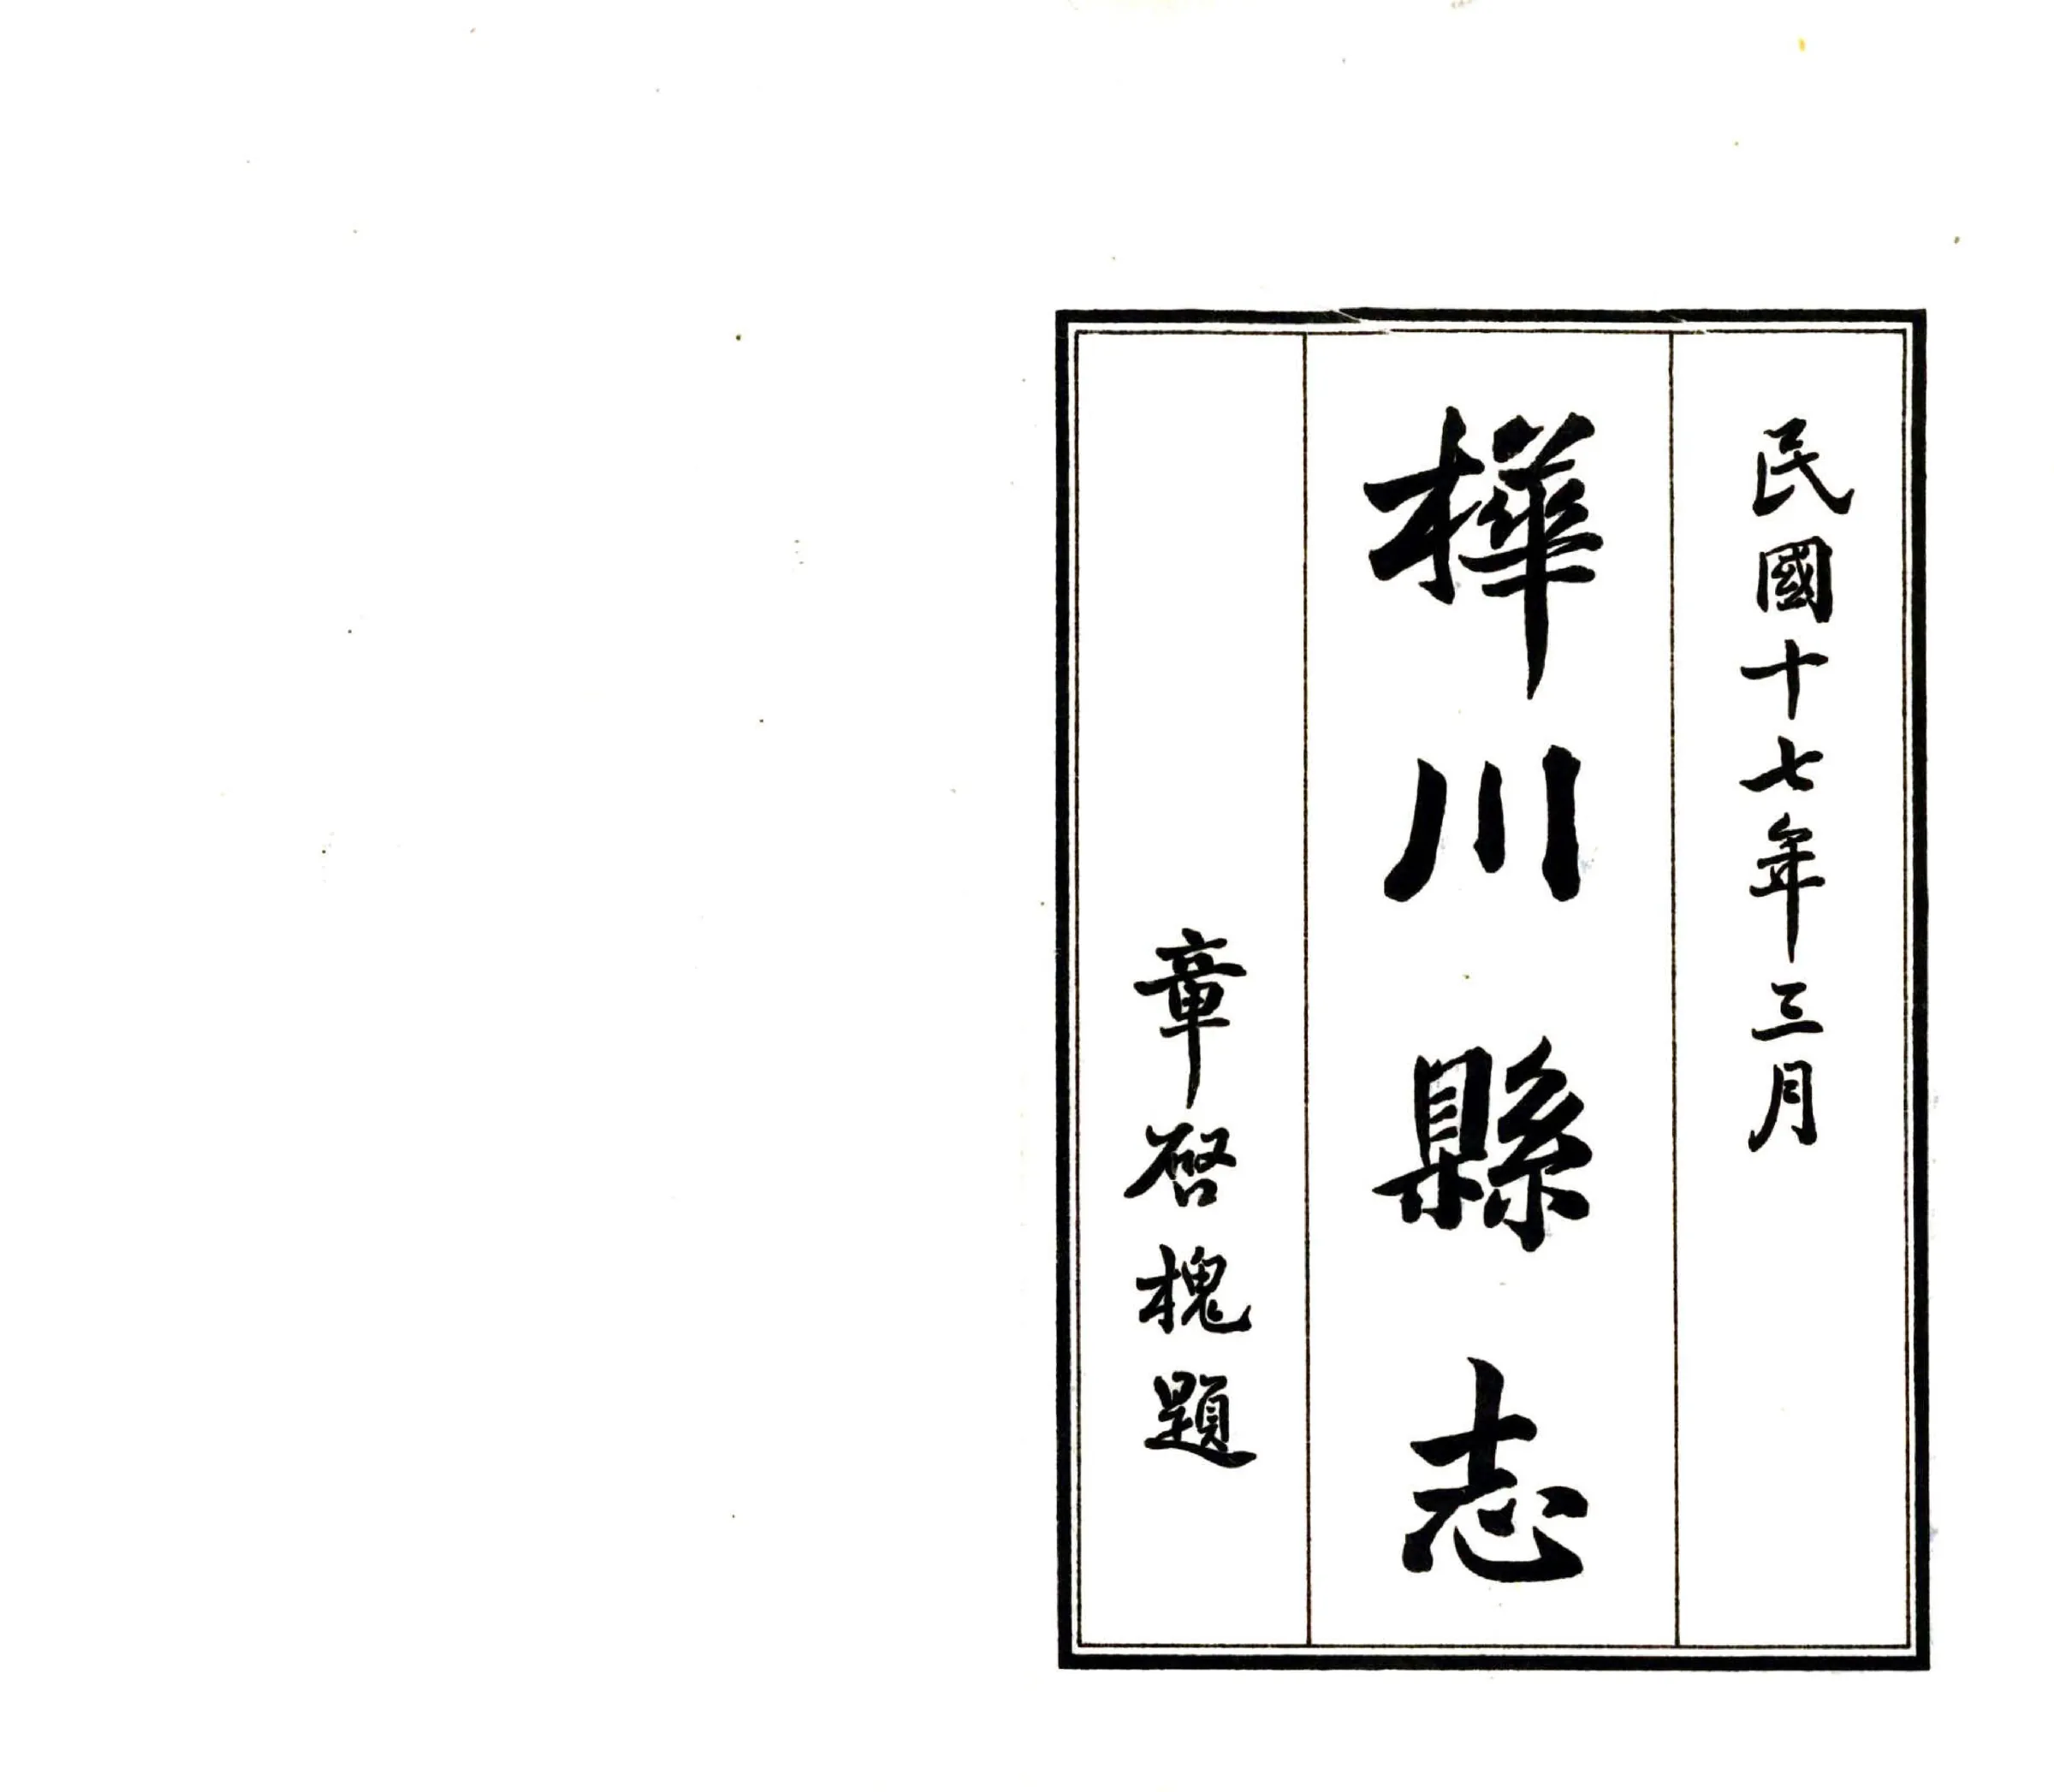 民國十七年三月
樺川縣志
章啓槐題